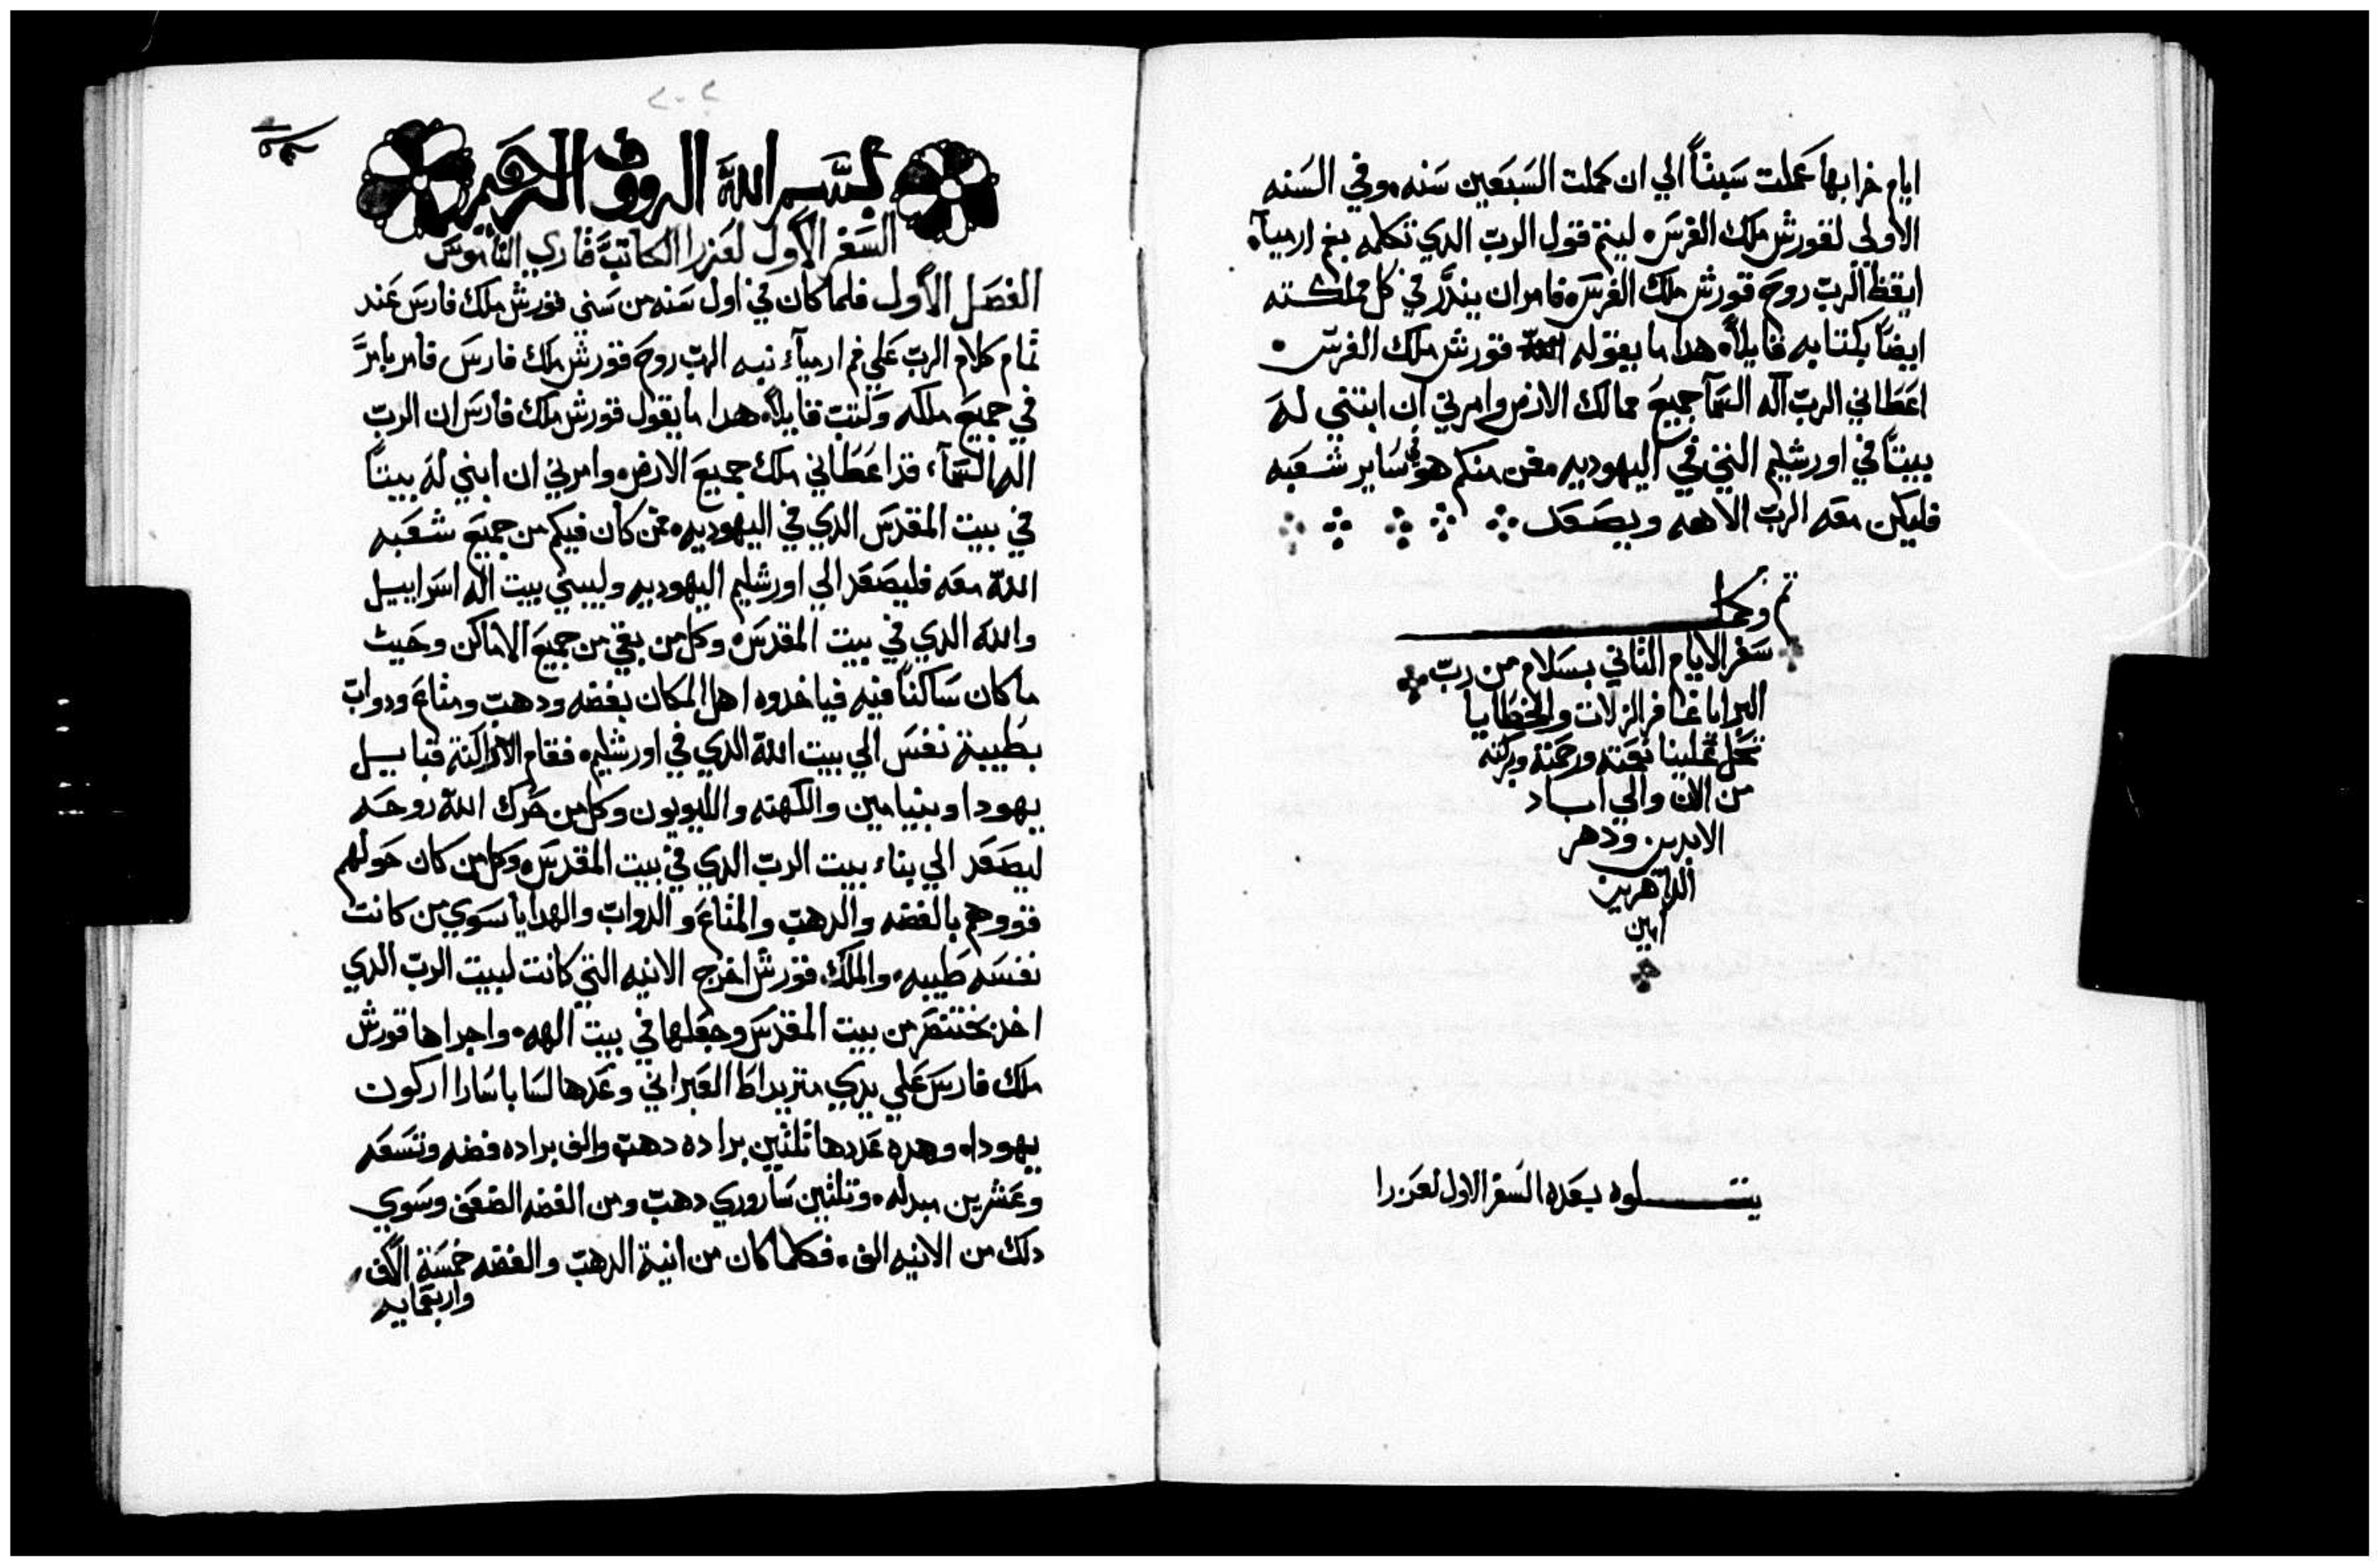 ايام خرابها عملت سبتاً الي ان كملت السبعين سنه وفي السنه
الاولي لقورش ملك الفرس ليتم قول الرب الدي تكلمه بفم ارميآ
ايقظ الرب روح قورش ملك الفرس فامر ان ينذر في كل مملكته
ايضاً بكتابه قايلاً هدا ما يقوله قورش ملك الفرس
اعطاني الرب اله السمآ جميع ممالك الارض وامرني ان ابتني له
بيتاً في اورشليم التي في اليهوديه فمن منكم هو في ساير شعبه
فليكن معه الرب الاهه ويصعد
تم وكمل
سفر الايام الثاني بسلام من رب
البرايا غافر الزلات والخطايا
تحل علينا نعمته ورحمته وبركته
من الان والي اباد
الابدين ودهر
الداهرين
امين
يتلوه بعده السفر الاول لعزرا
بسم الله الرووف الرحيم
السفر الاول لعزرا الكاتب قاري الناموس
الفصل الاول فلما كان في اول سنه من سني قورش ملك فارس عند
تمام كلام الرب علي فم ارميآء نبه الرب روح قورش ملك فارس فامر بامر
في جميع ملكه وكتب قايلاً هدا ما يقول قورش ملك فارس ان الرب
اله السمآء قد اعطاني ملك جميع الارض وامرني ان ابني له بيتاً
في بيت المقدس الدي في اليهوديه فمن كان فيكم من جميع شعبه
الله معه فليصعد الي اورشليم اليهوديه وليبني بيت اله اسراييل
والله الدي في بيت المقدس وكل من بقي من جميع الاماكن وحيث
ما كان ساكناً فيه فياخدوه اهل المكان بفضه ودهب ومتاع ودواب
بطيبة نفس الي بيت الله الدي في اورشليم فقام الاراكنة قبايل
يهودا وبنيامين والكهنه والليويون وكل من حرك الله روحه
ليصعد الي بناء بيت الرب الدي في بيت المقدس وكل من كان حولهم
قووهم بالفضه والدهب والمتاع والدواب والهدايا سوي من كانت
نفسه طيبه والملك قورش اخرج الانيه التي كانت لبيت الرب الدي
اخد بختنصر من بيت المقدس وجعلها في بيت الهه واجراها قورش
ملك فارس علي يدي متريداط العبراني وعدها لساباسارا اركون
يهودا وهده عددها تلتين براده دهب والف براده فضه وتسعه
وعشرين مبدله وتلتين ساروري دهب ومن الفضه الضعف وسوي
دلك من الانيه الف فكلما كان من انية الدهب والفضه خمسة الاف
واربعمايه